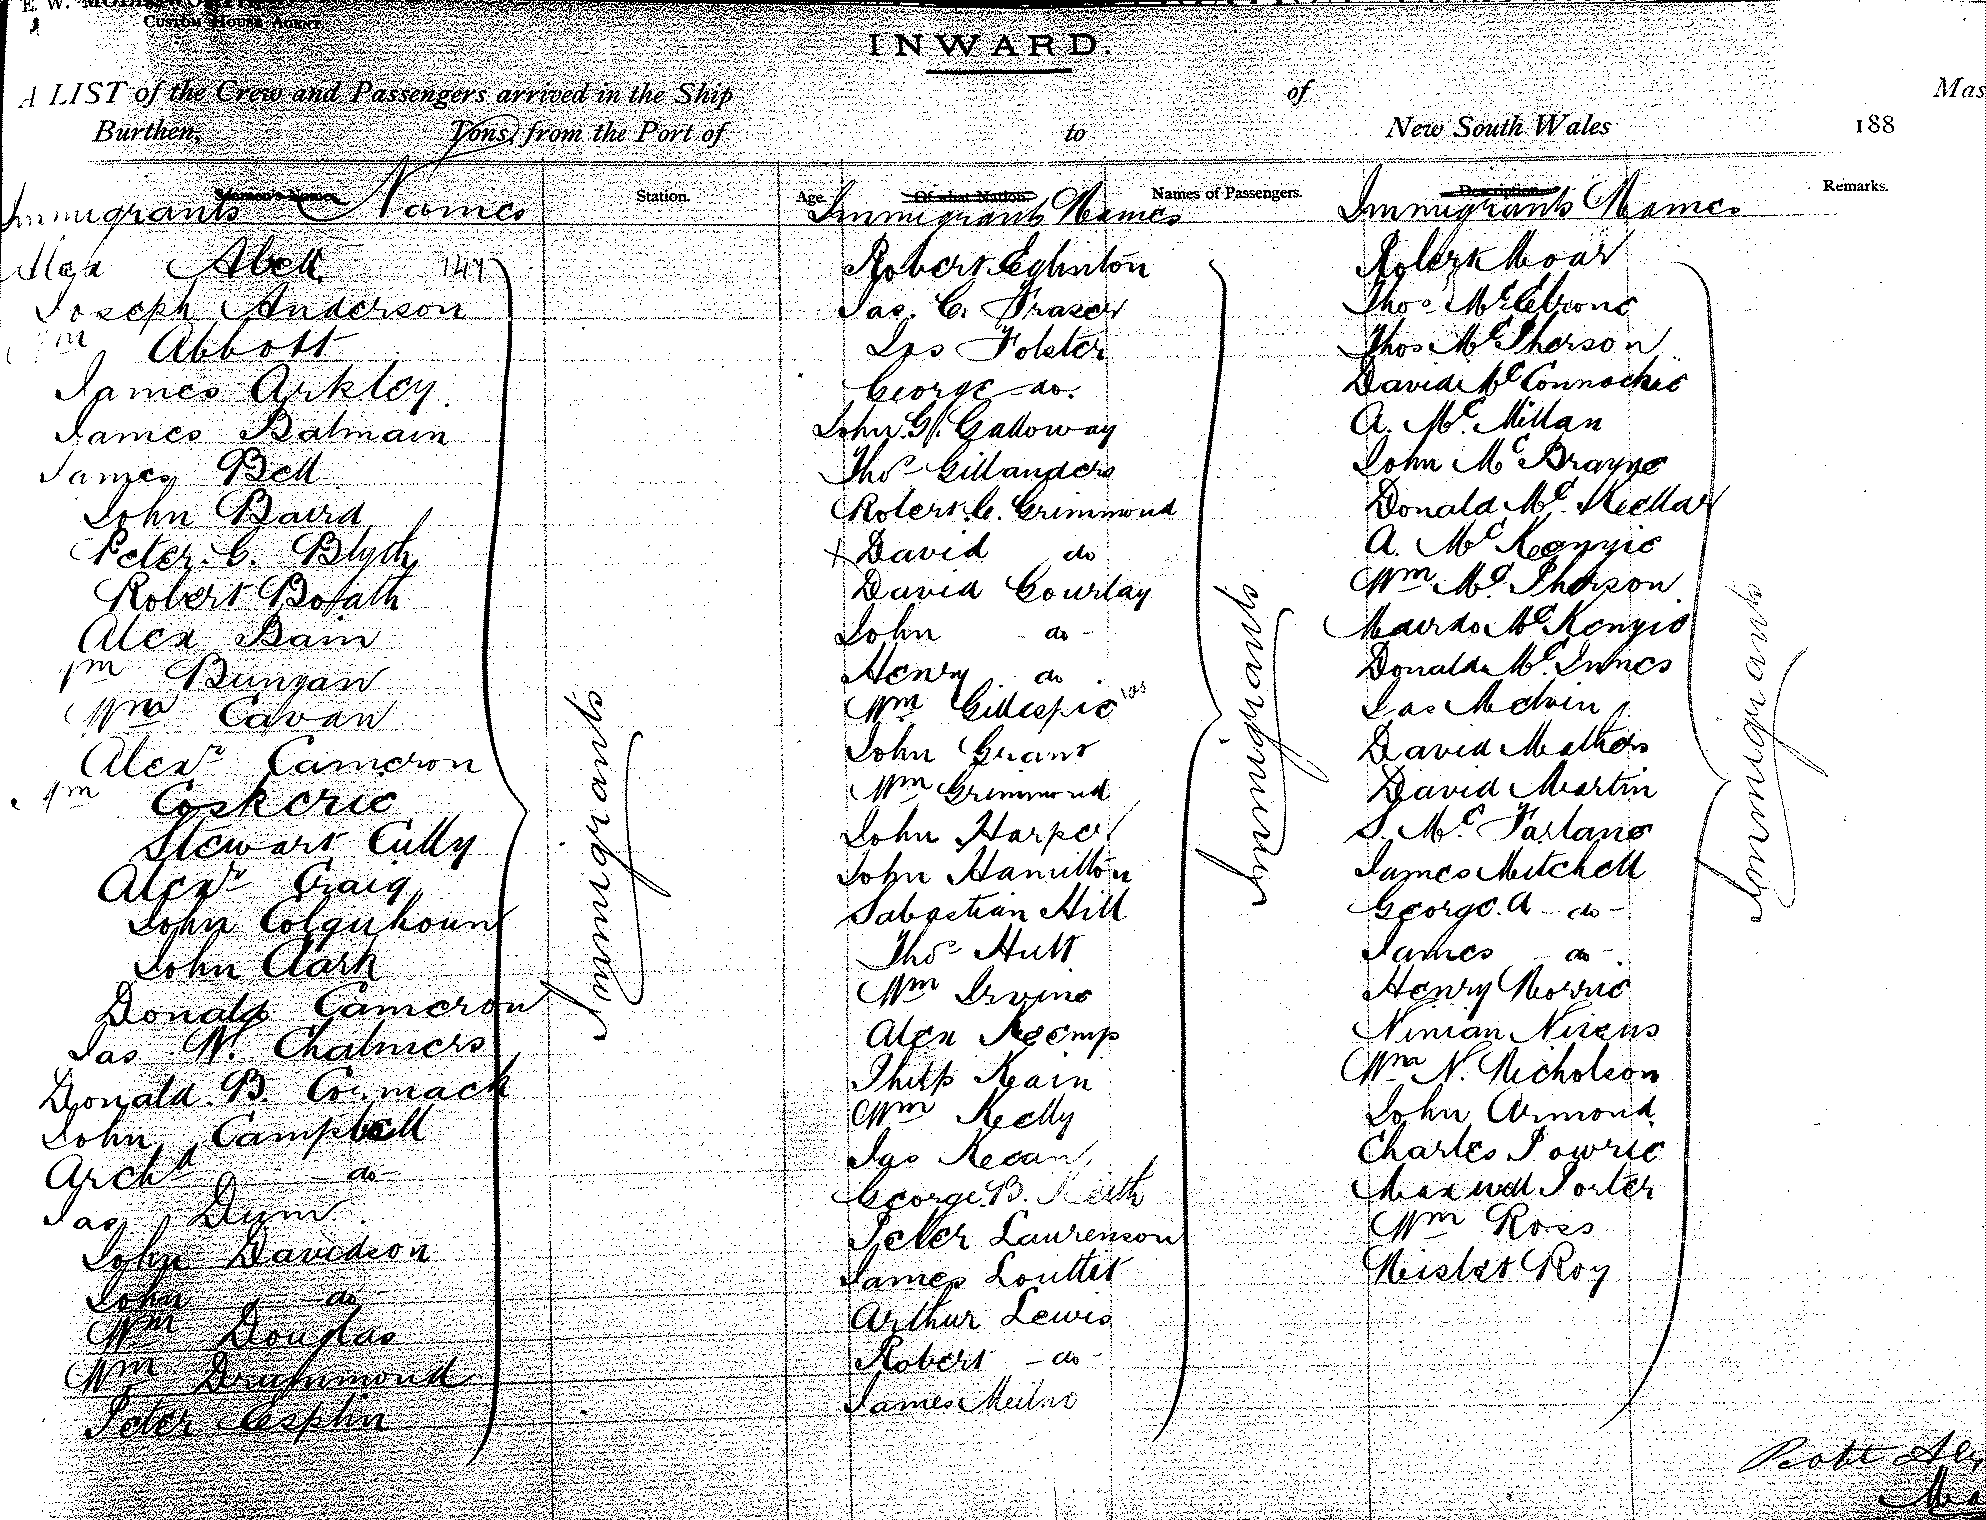 E. W. MOLESWORTH
CUSTOM HOUSE AGENT
INWARD.
A LIST of the Crew and Passengers arrived in the Ship of Mas
Burthen, Tons, from the Port of to New South Wales 188
Station. Age. Of what Nation. Names of Passengers. Description. Remarks.
Immigrants Names
Alex Abell 147
Joseph Anderson
Wm Abbott
James Arkley.
James Balmain
James Bell
John Baird
Peter. C. Blyth
Robert Boath
Alex Bain
Wm Bunyan
Wm Cavan
Alexr Cameron
Wm Coskerie
Stewart Cully
Alexr Craig
John Colquhoun
John Clark
Donald Cameron
Jas W. Chalmers
Donald. B. Cormack
John Campbell
Archd do
Jas Dym
John Davidson
John do
Wm Douglas
Wm Drummond
Peter Esplin
Immigrants
Immigrants Names
Robert Eglinton
Jas. C. Fraser
Jas Folster
George do.
John. G. Galloway
Thos Gillanders
Robert. C. Grimmond
+ David do
David Gourlay
John do
Henry do
Wm Gillespie
John Grant
Wm Grimmond
John Harper
John Hamilton
Sabastian Hill
Thos Hutt
Wm Irvine
Alex Keemp
Philp Kain
Wm Kelly
Jas Kean
George. B. Keith
Peter Laurenson
James Louttit
Arthur Lewis
Robert do
James Meilne
Immigrants
Immigrants Names
Robert Moar
Thos McElrone
Thos McPherson
David McConnachie
A. McMillan
John McBrayne
Donald McKellar
A. McKenzie
Wm McPherson
Murdo McKenzie
Donald McInnes
Jas Melvin
David Mathers
David Martin
S. McFarlane
James Mitchell
George. A do
James do
Henry Norrie
Ninian Nivens
Wm N. Nicholson
John Ormond
Charles Powrie
Maxwell Porter
Wm Ross
Roy
Immigrants
Robt